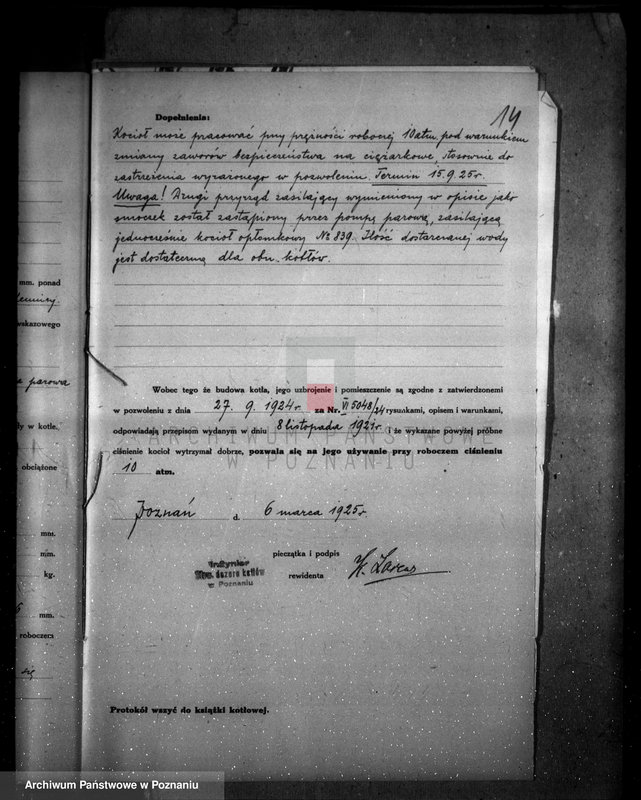 14
Dopełnienia:
Kocioł może pracować przy prężności roboczej 10 atm. pod warunkiem
zmiany zaworów bezpieczeństwa na ciężarkowe, stosownie do
zastrzeżenia wyrażonego w pozwoleniu. Termin 15.9.25 r.
Uwaga! Drugi przyrząd zasilający wymieniony w opisie jako
smoczek został zastąpiony przez pompę parową, zasilającą
jednocześnie kocioł opłomkowy № 839. Ilość dostarczanej wody
jest dostateczną dla obu kotłów.
mm. ponad
wskazowego
a parowa
ły w kotle.
obciążone
mm.
mm.
kg.
mm.
roboczera
się
Wobec tego że budowa kotła, jego uzbrojenie i pomieszczenie są zgodne z zatwierdzonemi
w pozwoleniu z dnia 27. 9. 1924 r. za Nr. VI 5048/24 rysunkami, opisem i warunkami,
odpowiadają przepisom wydanym w dniu 8 listopada 1921 r. i że wykazane powyżej próbne
ciśnienie kocioł wytrzymał dobrze, pozwala się na jego używanie przy roboczem ciśnieniu
10 atm.
Poznań d. 6 marca 1925 r.
pieczątka i podpis
rewidenta
Inżynier
Stow. dozoru kotłów
w Poznaniu
Protokół wszyć do książki kotłowej.
ARCHIWUM PAŃSTWOWE
W POZNANIU
Archiwum Państwowe w Poznaniu